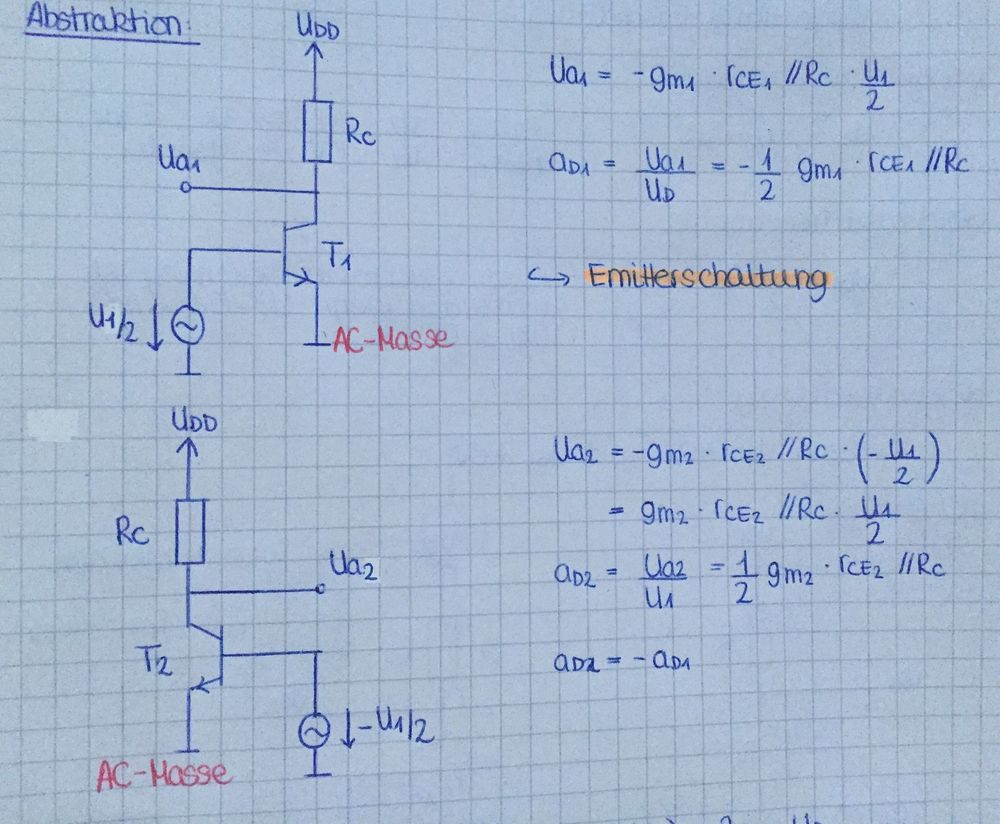 Abstraktion:
UDD
Rc
Ua1
T1
U1/2
AC-Masse
Ua1 = -gm1 · rCE1 // Rc · U1/2
aD1 = Ua1/UD = -1/2 gm1 · rCE1 // Rc
↪ Emitterschaltung
UDD
Rc
Ua2
T2
-U1/2
AC-Masse
Ua2 = -gm2 · rCE2 // Rc · (-U1/2)
= gm2 · rCE2 // Rc · U1/2
aD2 = Ua2/U1 = 1/2 gm2 · rCE2 // Rc
aD2 = -aD1